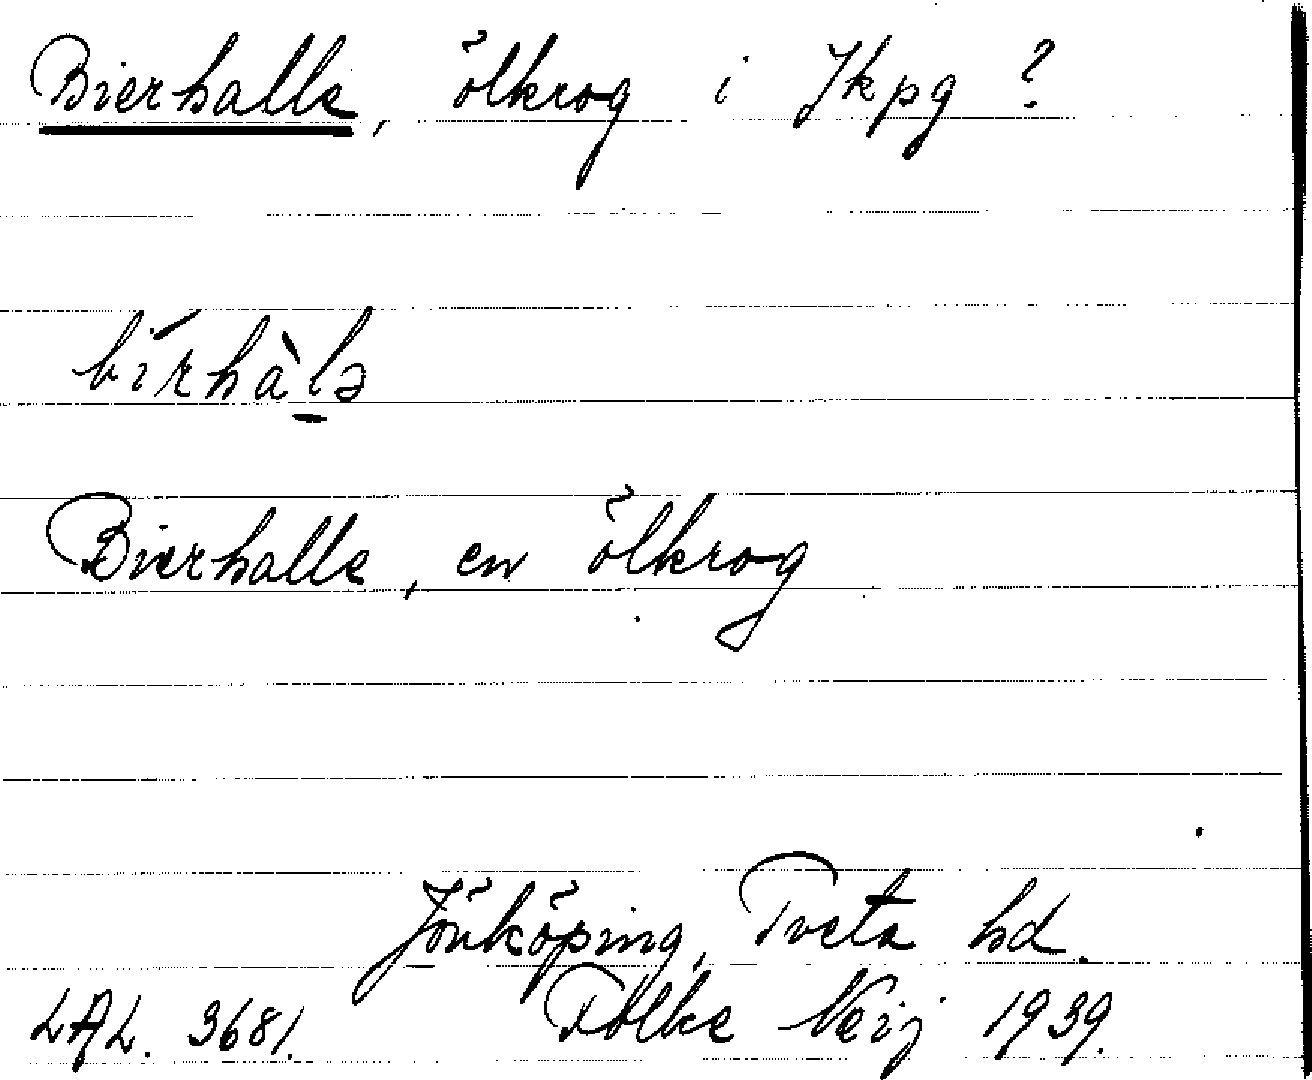 Bierhalle, ölkrog i Jkpg?
bírhàlə
Bierhalle, en ölkrog
Jönköping, Tveta hd.
LAL. 3681. Folke Neij 1939.